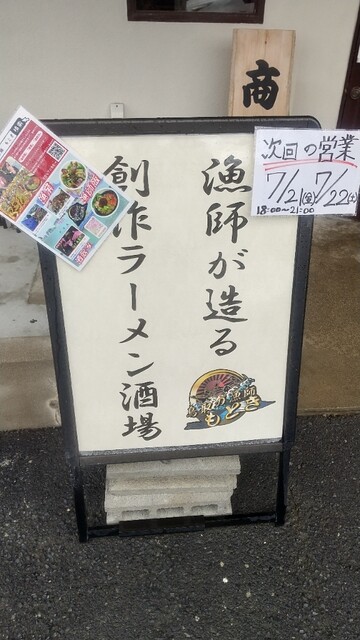 商
次回の営業
7/21(金) 7/22(土)
18:00〜21:00
漁師が造る
創作ラーメン酒場
漁師
もとき